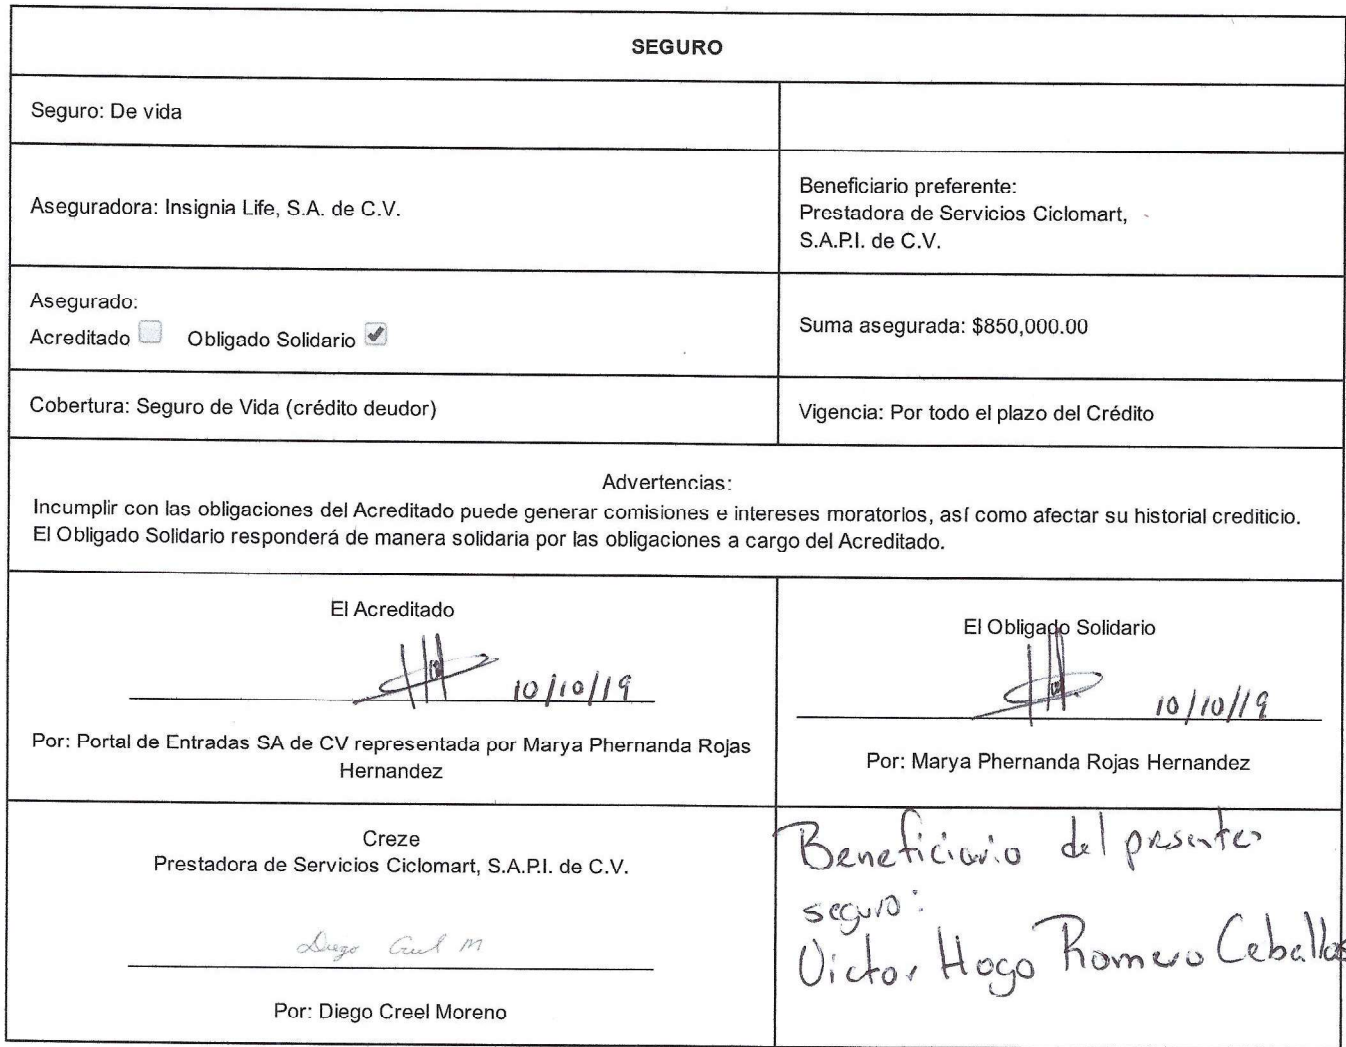 SEGURO
Seguro: De vida
Aseguradora: Insignia Life, S.A. de C.V.
Beneficiario preferente:
Prestadora de Servicios Ciclomart,
S.A.P.I. de C.V.
Asegurado:
Acreditado Obligado Solidario
Suma asegurada: $850,000.00
Cobertura: Seguro de Vida (crédito deudor)
Vigencia: Por todo el plazo del Crédito
Advertencias:
Incumplir con las obligaciones del Acreditado puede generar comisiones e intereses moratorios, así como afectar su historial crediticio.
El Obligado Solidario responderá de manera solidaria por las obligaciones a cargo del Acreditado.
El Acreditado
10/10/19
Por: Portal de Entradas SA de CV representada por Marya Phernanda Rojas
Hernandez
El Obligado Solidario
10/10/19
Por: Marya Phernanda Rojas Hernandez
Creze
Prestadora de Servicios Ciclomart, S.A.P.I. de C.V.
Diego Creel M
Por: Diego Creel Moreno
Beneficiario del presente
seguro:
Victor Hogo Romero Ceballos